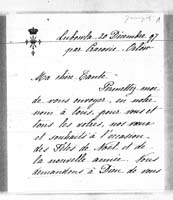 Lubowla. 20 Décembre 97
par Cracovie. Orlow
Ma chère Tante.
Permettez moi
de vous envoyer, en notre
nom à tous, pour vous et
tous les vôtres, nos vœux
et souhaits à l'occasion
des Fêtes de Noël et de
la nouvelle année. Nous
demandons à Dieu de vous